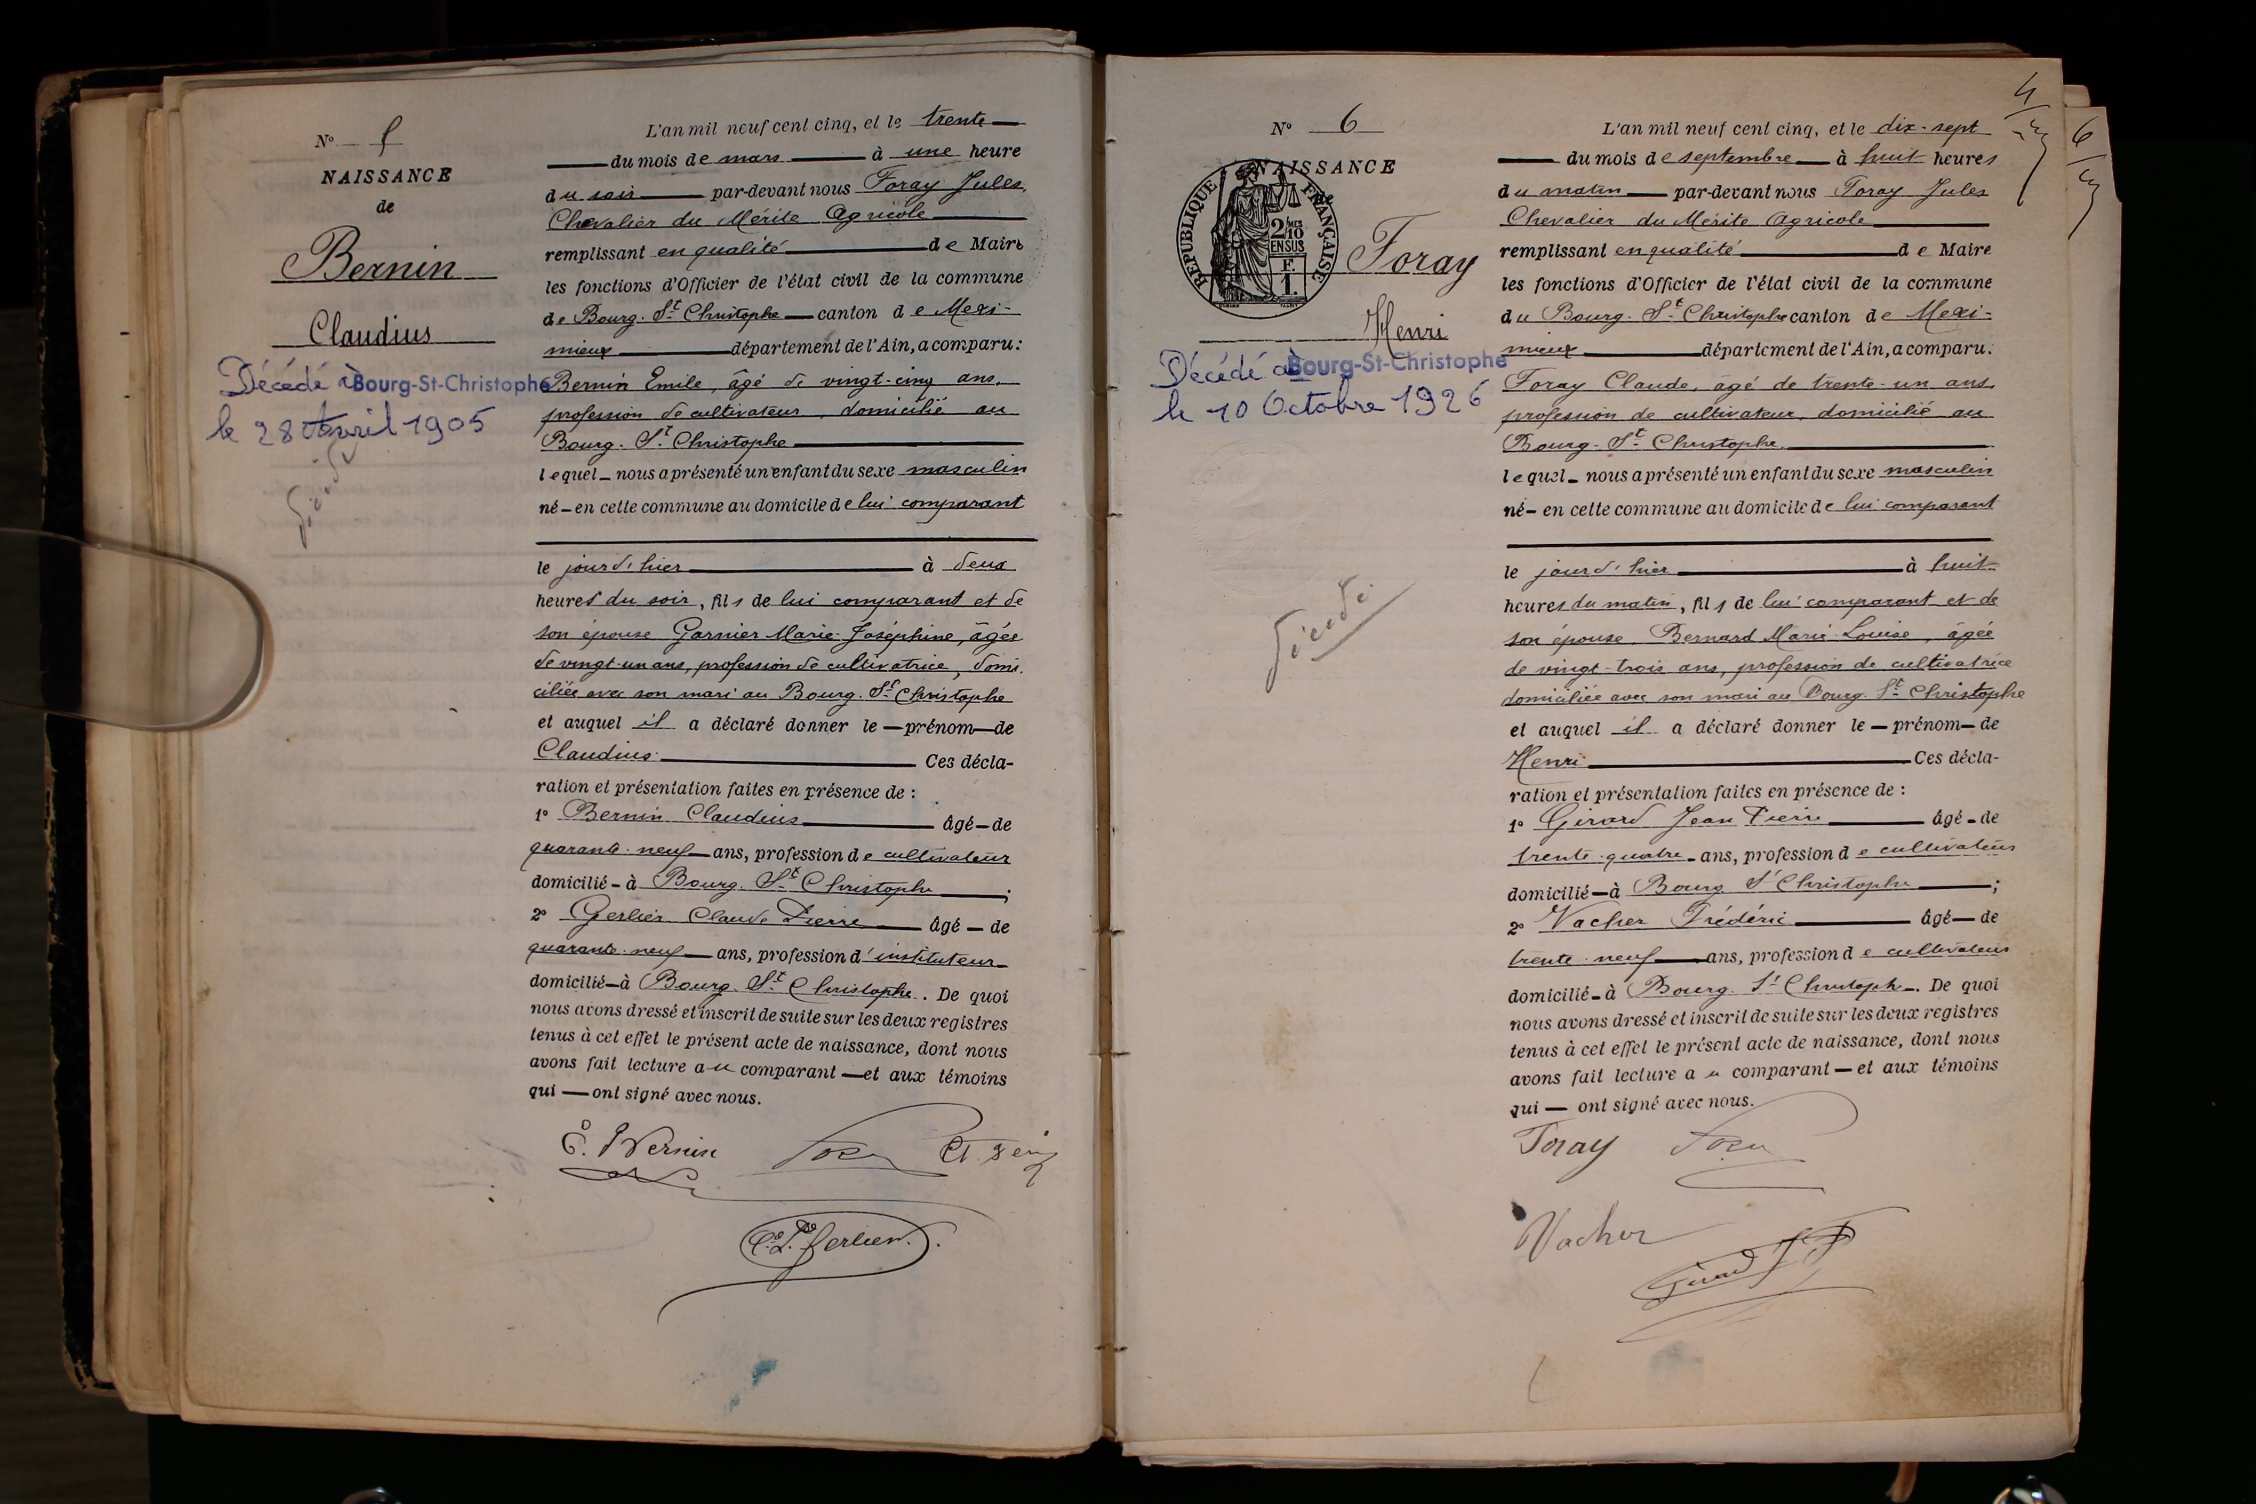 N° 5
NAISSANCE
de
Bernin
Claudius
Décédé à Bourg-St-Christophe
le 28 Avril 1905
L'an mil neuf cent cinq, et le trente
du mois de mars à une heure
du soir par-devant nous Foray Jules,
Chevalier du Mérite Agricole
remplissant en qualité de Maire
les fonctions d'Officier de l'état civil de la commune
de Bourg-St-Christophe canton de Mexi-
mieux département de l'Ain, a comparu:
Bernin Emile, âgé de vingt-cinq ans,
profession de cultivateur, domicilié au
Bourg-St-Christophe
lequel nous a présenté un enfant du sexe masculin
né en cette commune au domicile de lui comparant
le jour d'hier à deux
heures du soir, fils de lui comparant et de
son épouse Garnier Marie-Joséphine, âgée
de vingt-un ans, profession de cultivatrice, domi-
ciliée avec son mari au Bourg-St-Christophe
et auquel il a déclaré donner le prénom de
Claudius Ces décla-
ration et présentation faites en présence de :
1° Bernin Claudius âgé de
quarante-neuf ans, profession de cultivateur
domicilié à Bourg-St-Christophe ;
2° Gerlier Claude Pierre âgé de
quarante-neuf ans, profession d'instituteur
domicilié à Bourg-St-Christophe. De quoi
nous avons dressé et inscrit de suite sur les deux registres
tenus à cet effet le présent acte de naissance, dont nous
avons fait lecture au comparant et aux témoins
qui ont signé avec nous.
E. Bernin
C. P. Gerlier
N° 6
NAISSANCE
RÉPUBLIQUE FRANÇAISE
2/10
EN SUS
F.
1.
Foray
Henri
Décédé à Bourg-St-Christophe
le 10 Octobre 1926
L'an mil neuf cent cinq, et le dix-sept
du mois de septembre à huit heures
du matin par-devant nous Foray Jules
Chevalier du Mérite Agricole
remplissant en qualité de Maire
les fonctions d'Officier de l'état civil de la commune
du Bourg-St-Christophe canton de Mexi-
mieux département de l'Ain, a comparu:
Foray Claude, âgé de trente-un ans,
profession de cultivateur, domicilié au
Bourg-St-Christophe
lequel nous a présenté un enfant du sexe masculin
né en cette commune au domicile de lui comparant
le jour d'hier à huit
heures du matin, fils de lui comparant et de
son épouse Bernard Marie-Louise, âgée
de vingt-trois ans, profession de cultivatrice
domiciliée avec son mari au Bourg-St-Christophe
et auquel il a déclaré donner le prénom de
Henri Ces décla-
ration et présentation faites en présence de :
1° Girard Jean Pierre âgé de
trente-quatre ans, profession de cultivateur
domicilié à Bourg St Christophe ;
2° Vacher Frédéric âgé de
trente-neuf ans, profession de cultivateur
domicilié à Bourg-St-Christophe. De quoi
nous avons dressé et inscrit de suite sur les deux registres
tenus à cet effet le présent acte de naissance, dont nous
avons fait lecture au comparant et aux témoins
qui ont signé avec nous.
Foray
Vacher
Girard J P